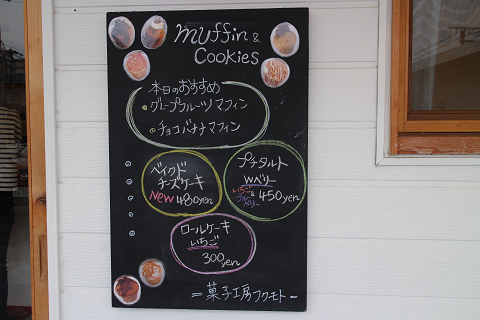 muffin &
Cookies
本日のおすすめ
グープフルーツマフィン
チョコバナナマフィン
ベイクド
チーズケーキ
New 480yen
プチタルト
Wベリー
いちご&
ブルベリー 450yen
ロールケーキ
いちご
300yen
= 菓子工房フクモト -